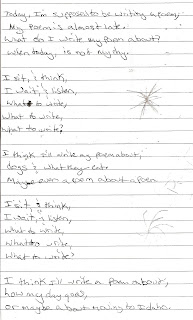 Today, I'm supposed to be writing a poem,
My poem is almost late.
What do I write my poem about?
When today, is not my day.
I sit, & think,
I wait, & listen,
What to write,
What to write,
What to write?
I think I'll write my poem about,
dogs & what they eat
Maybe even a poem about a poem
I sit & think,
I wait, & listen,
What to write,
What to write,
What to write?
I think I'll write a poem about,
how my day goes,
or maybe about moving to Idaho.